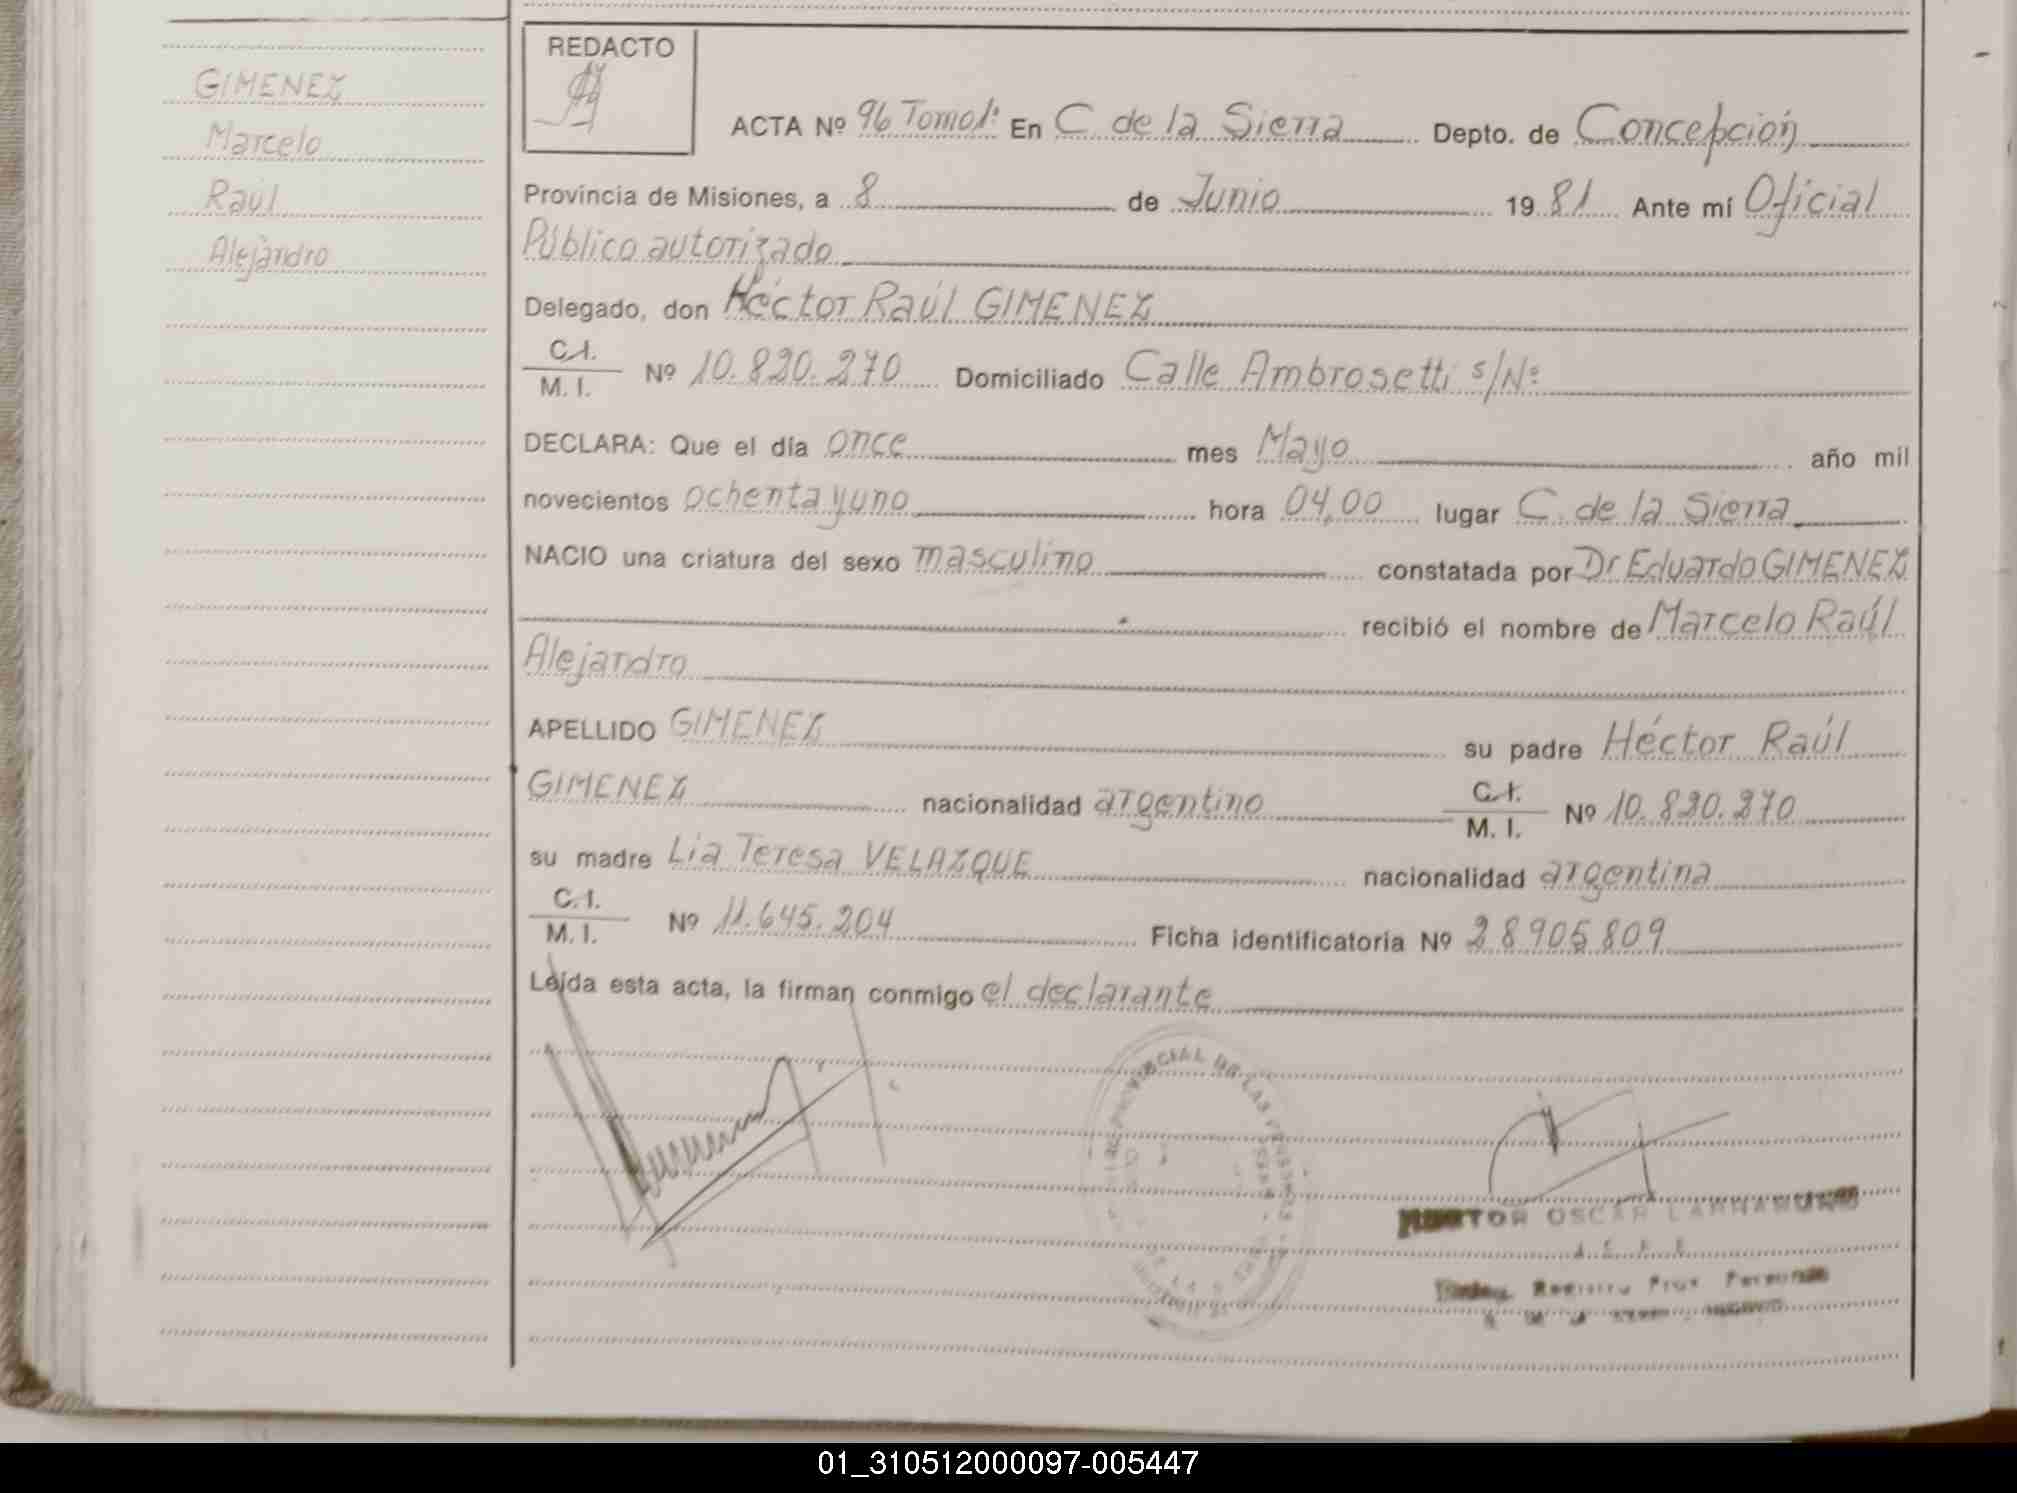 GIMENEZ
Marcelo
Raúl
Alejandro
REDACTO
ACTA Nº 96 Tomo I: En C. de la Sierra Depto. de Concepción
Provincia de Misiones, a 8 de Junio 1981 Ante mí Oficial
Público autorizado
Delegado, don Héctor Raúl GIMENEZ
C.I.
M. I. Nº 10.820.270 Domiciliado Calle Ambrosetti s/Nº
DECLARA: Que el día once mes Mayo año mil
novecientos ochenta y uno hora 04,00 lugar C. de la Sierra
NACIO una criatura del sexo masculino constatada por Dr Eduardo GIMENEZ
recibió el nombre de Marcelo Raúl
Alejandro
APELLIDO GIMENEZ su padre Héctor Raúl
GIMENEZ nacionalidad argentino C.I. M. I. Nº 10.820.270
su madre Lia Teresa VELAZQUE nacionalidad argentina
C.I.
M. I. Nº 11.645.204 Ficha identificatoria Nº 28905809
Leída esta acta, la firman conmigo el declarante
PROVINCIAL DE LAS PERSONAS
HECTOR OSCAR
JEFE
Registro Prov Personas
01_310512000097-005447